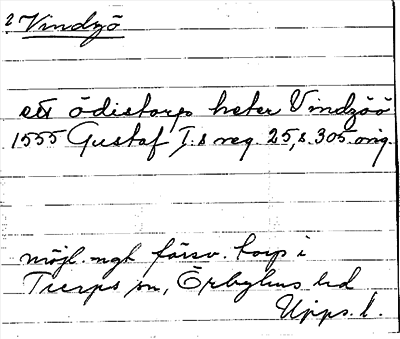 2 Vindsjö
ett ödistorp heter Vindzöö
1555 Gustaf I.s reg. 25, s. 305 orig.
möjl. ngt försv. torp i
Tierps sn, Örbyhus hd
Upps. l.